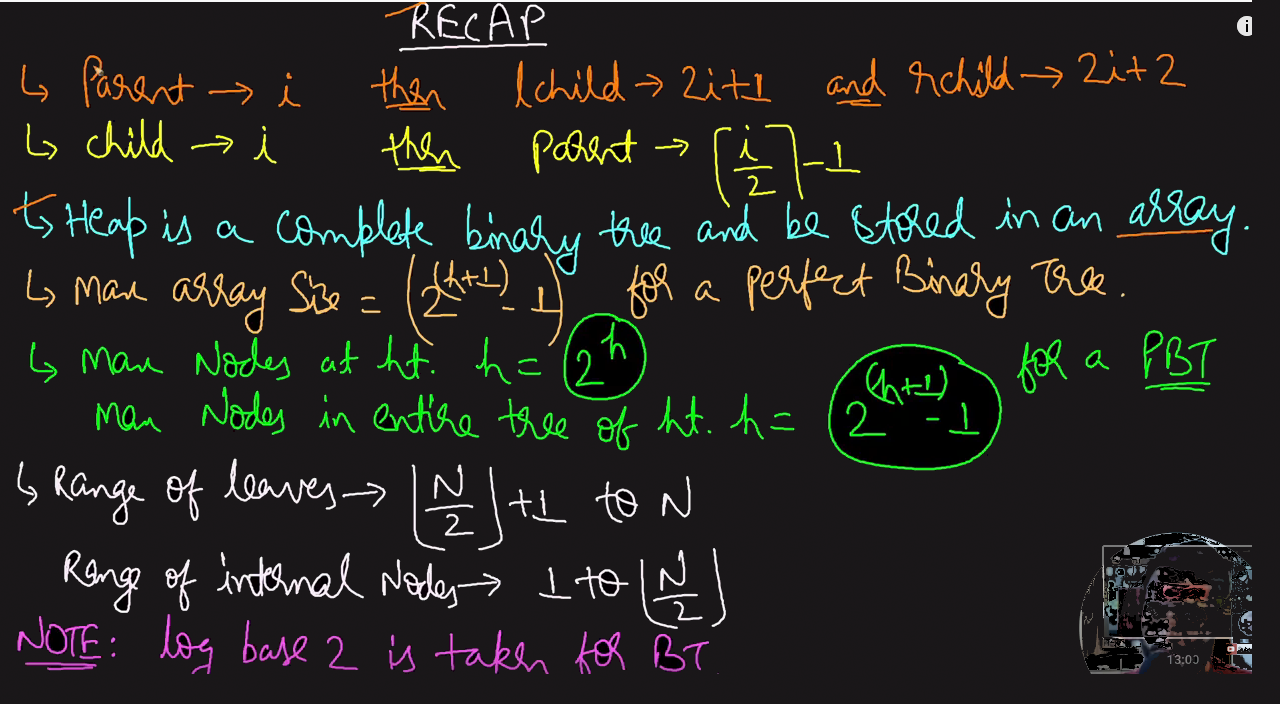 RECAP
↳ Parent → i then lchild → 2i+1 and rchild → 2i+2
↳ child → i then parent → ⌈i/2⌉ - 1
↳ Heap is a complete binary tree and be stored in an array.
↳ Max array Size = (2^(h+1) - 1) for a perfect Binary Tree.
↳ Max Nodes at ht. h = 2^h for a PBT
Max Nodes in entire tree of ht. h = 2^(h+1) - 1
↳ Range of leaves → ⌊N/2⌋ + 1 to N
Range of internal Nodes → 1 to ⌊N/2⌋
NOTE: log base 2 is taken for BT
13:00